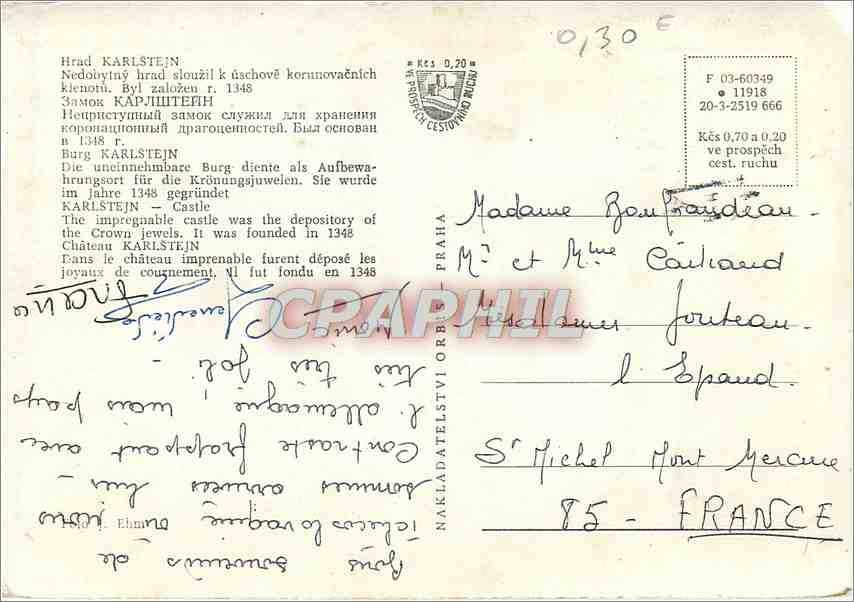 0,30 €
Hrad KARLŠTEJN
Nedobytný hrad sloužil k úschově korunovačních
klenotů. Byl založen r. 1348
Замок КАРЛШТЕЙН
Неприступный замок служил для хранения
коронационный драгоценностей. Был основан
в 1348 г.
Burg KARLŠTEJN
Die uneinnehmbare Burg diente als Aufbewa-
hrungsort für die Krönungsjuwelen. Sie wurde
im Jahre 1348 gegründet
KARLŠTEJN — Castle
The impregnable castle was the depository of
the Crown jewels. It was founded in 1348
Château KARLŠTEJN
Dans le château imprenable furent déposé les
joyaux de cournement. Il fut fondu en 1348
Kčs 0,20
VE PROSPĚCH CESTOVNÍHO RUCHU
F 03-60349
11918
20-3-2519 666
Kčs 0,70 a 0,20
ve prospěch
cest. ruchu
NAKLADATELSTVÍ ORBIS - PRAHA
Madame
Mr et Mme
Mesdames
l'Epaud.
St Michel Mont Mercure
85 - FRANCE
Bons
souvenirs de
Tchécoslovaquie où nous
sommes arrivées hier -
Contraste frappant avec
l'allemagne, mais pays
très très joli -
CPAPHIL
Ehm